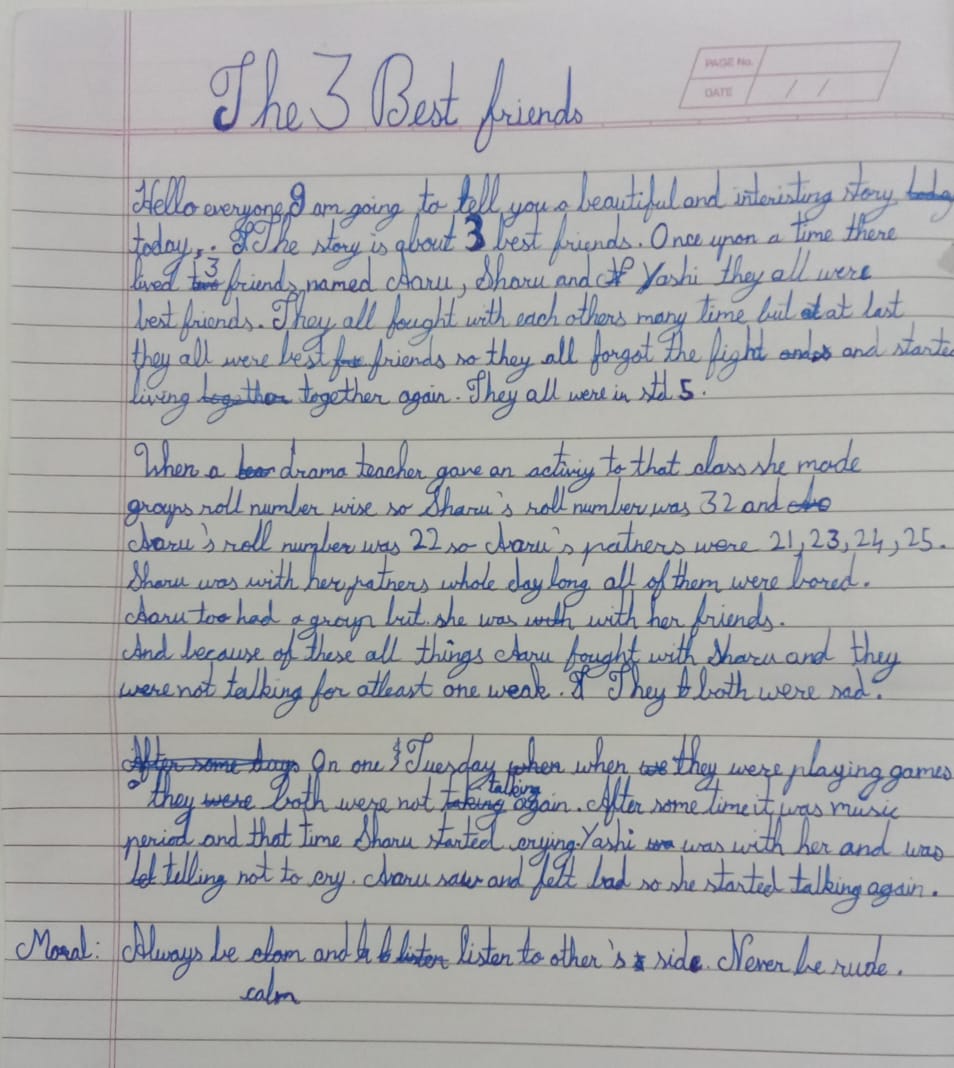 The 3 Best friends
PAGE No.
DATE / /
Hello everyone, I am going to tell you a beautiful and interisting story today
today,. The story is about 3 best friends. Once upon a time there
lived two 3 friends named Aaru, Sharu and Yashi they all were
best friends. They all fought with each others many time but at at last
they all were best friends so they all forgot the fight and and started
living together together again. They all were in std 5.
When a drama teacher gave an activiy to that class she made
groups roll number wise so Sharu's roll number was 32 and
Aaru's roll number was 22 so Aaru's patners were 21, 23, 24, 25.
Sharu was with her patners whole day long all of them were bored.
Aaru too had a group but she was with with her friends.
And because of these all things Aaru fought with Sharu and they
were not talking for atleast one weak. They both were sad.
After some days On one Tuesday when when we they were playing games
they were both were not taking talking again. After some time it was music
period and that time Sharu started crying. Yashi was with her and was
telling not to cry. Aaru saw and felt bad so she started talking again.
Moral: Always be clam and listen listen to other's side. Never be rude.
calm